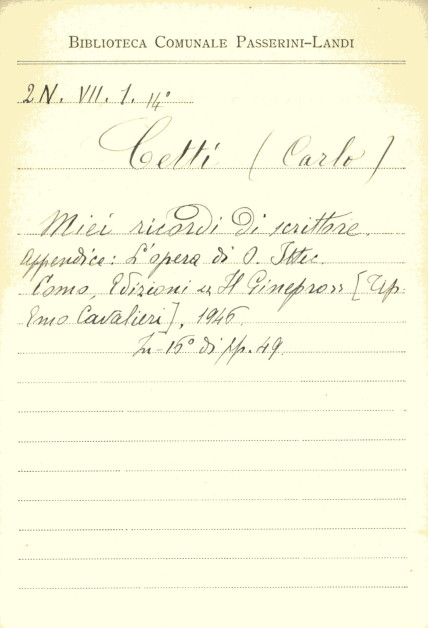 BIBLIOTECA COMUNALE PASSERINI-LANDI
2N. VII. 1. 14°
Cetti (Carlo)
Miei ricordi di scrittore.
Appendice: L'opera di
Como, Edizioni "Il Ginepro" [Tip.
Emo Cavalieri], 1946.
In-16° di pp. 49.